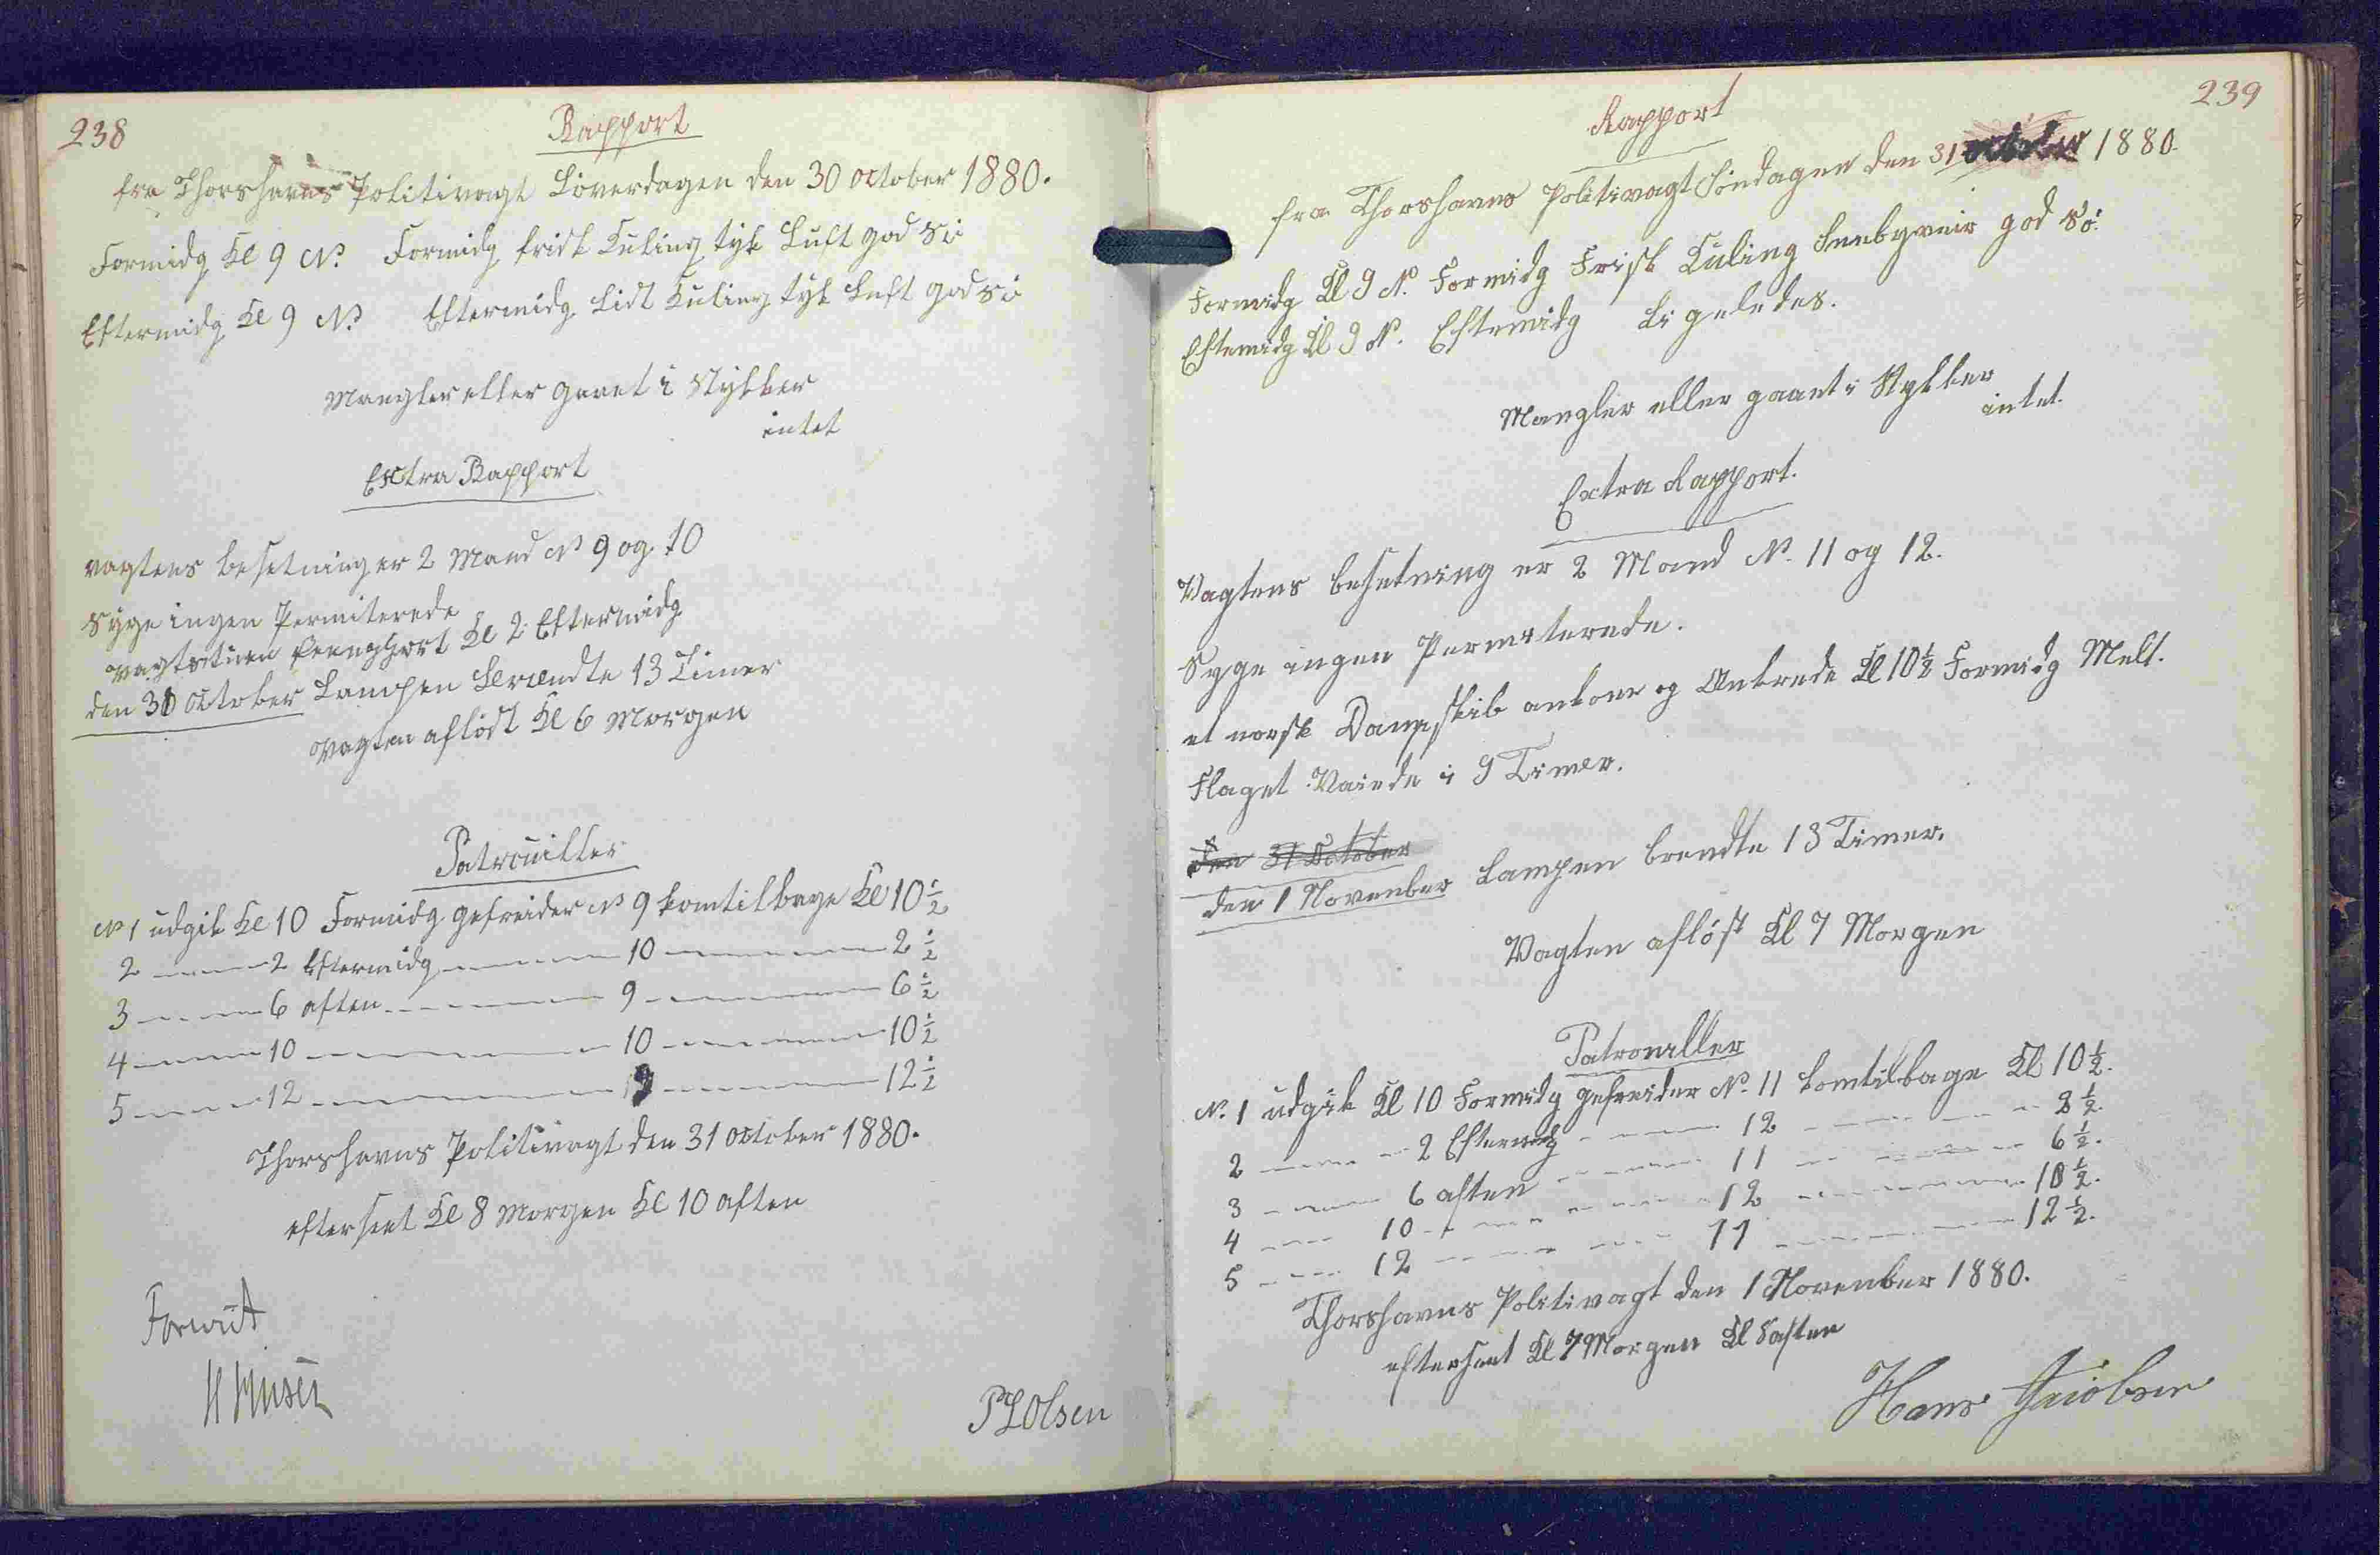 238
Rapport
fra Thorshavns Politivagt Löverdagen den 30 october 1880.
Formidg Kl 9 No. Formidg frisk Kuling tyk Luft god Sö
Eftermidg Kl 9 No Eftermidg Lidt Kuling tyk Luft god Sö
Mangler eller gaaet i Stykker
intet
Extra Rapport
vagtens besetning er 2 Mand No 9 og 10
Syge ingen Permiterede
Vagtstuen Kl 2 Eftermidg
den 31 october Lampen brændte 13 Timer
vagten aflöst Kl 6 Morgen
Patrouiller
No 1 udgik Kl 10 Formidg gefreider No 9 komtilbage Kl 10 1/2
2 — 2 Eftermidg — 10 — 2 1/2
3 — 6 aften — 9 — 6 1/2
4 — 10 — 10 — 10 1/2
5 — 12 — 9 — 12 1/2
Thorshavns Politivagt den 31 october 1880.
efterseet Kl 8 Morgen Kl 10 aften
Forevist
PLOlsen
239
Rapport
fra Thorshavns Politivagt Söndagen den 31 october 1880.
Formidg Kl 9 N. Formidg Frisk Kuling Sneebyveir god Sö.
Eftemidg Kl 9 N. Eftemidg Ligeledes.
Mangler eller gaaet i Stykker
intet.
Extra Rapport.
Vagtens besetning er 2 Mand No. 11 og 12.
Syge ingen Permiterede.
et norsk Dampskib ankom og Ankrede Kl 10 1/2 Formidg Melt.
Flaget Vaiede i 9 Timer.
den 31 October
den 1 November Lampen brendte 13 Timer.
Vagten aflöst Kl 7 Morgen
Patrouiller
No. 1 udgik Kl 10 Formidg gefreider No. 11 komtilbage Kl 10 1/2.
2 — 2 Eftermidg — 12 — 2 1/2.
3 — 6 aften — 11 — 6 1/2.
4 — 10 — 12 — 10 1/2.
5 — 12 — 11 — 12 1/2.
Thorshavns Politivagt den 1 November 1880.
efterseet Kl 7 Morgen Kl aften
Hans Jacobsen